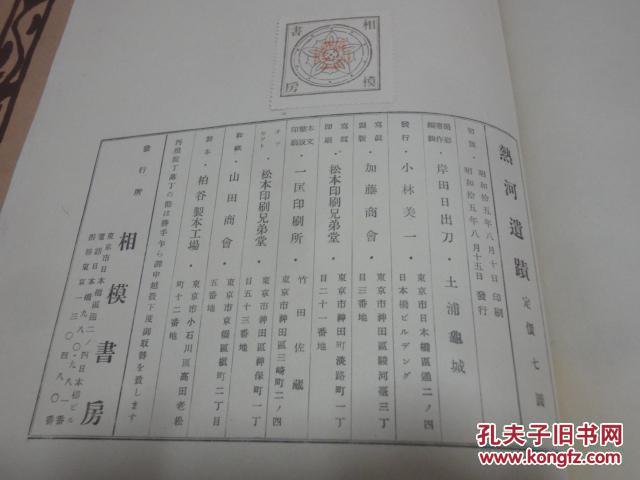 相模書房
熱河遺蹟 定價七圓
初版・昭和拾五年八月十日 印刷
昭和拾五年八月十五日 發行
岸田日出刀・土浦龜城
發行・小林美一 東京市日本橋區通二ノ四
日本橋ビルデング
寫眞製版・加藤商會・東京市神田區駿河臺三丁
目三番地
寫眞印刷・松本印刷兄弟堂 東京市神田區淡路町一丁
目二十一番地
本文印刷・一匡印刷所・竹田佐藏
東京市神田區三崎町二ノ四
オフセット・松本印刷兄弟堂 東京市神田區神保町一丁
目五十三番地
和紙・山田商會・東京市京橋區槇町二丁目
五番地
製本・柏谷製本工場・東京市小石川區高田老松
町十二番地
萬檢落丁亂丁の節は勝手乍ら御申越次第御取替を致します
發行所 相模書房
東京市日本橋區通二ノ四日本橋ビル
電話日本橋
振替東京
孔夫子旧书网
www.kongfz.com